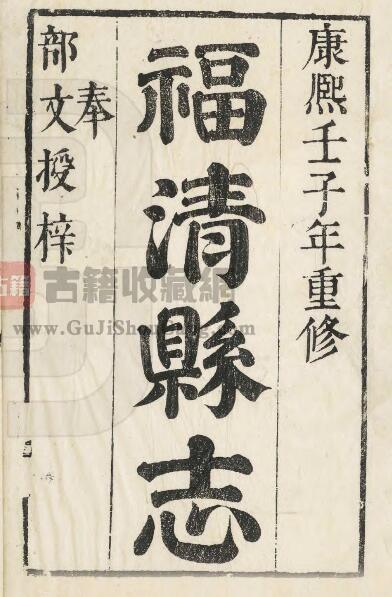 康熙壬子年重修
福清縣志
奉
部文授梓
古籍
古籍收藏網
www.GuJiShouCang.com